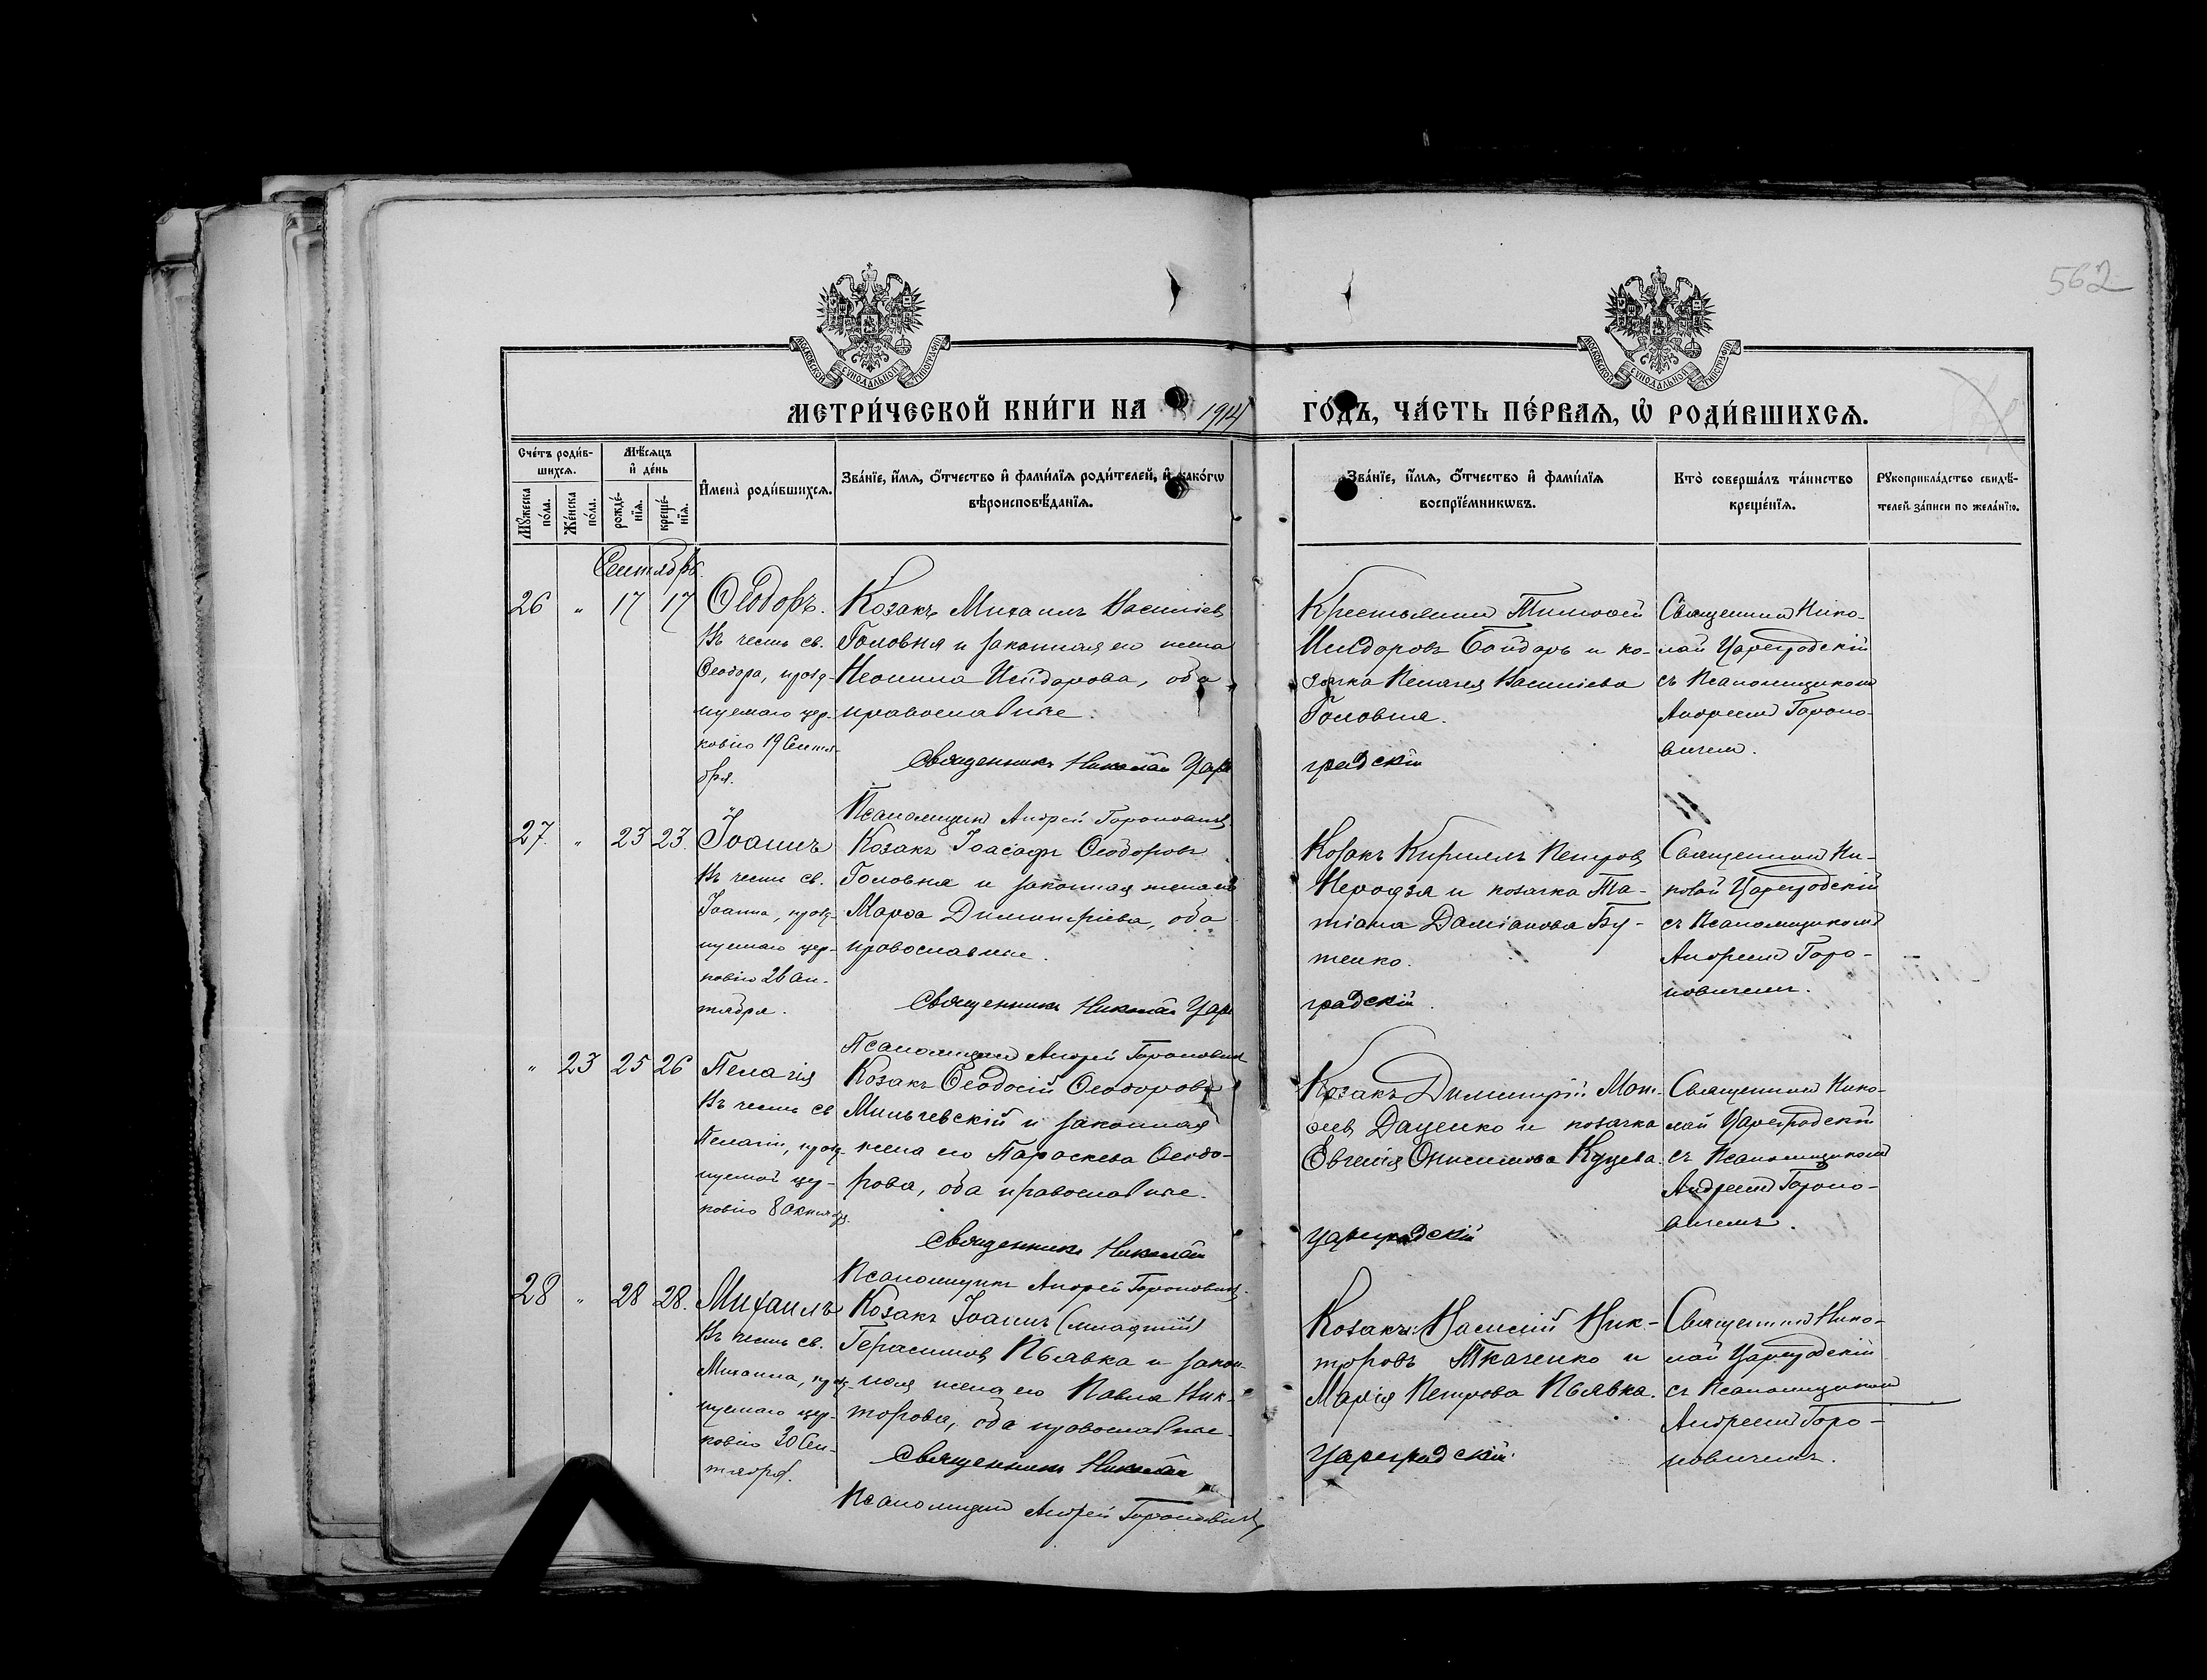 562
МОСКОВСКОЙ СѴНОДАЛЬНОЙ ТИПОГРАФІИ
МОСКОВСКОЙ СѴНОДАЛЬНОЙ ТИПОГРАФІИ
МЕТРИ́ЧЕСКОЙ КНИ́ГИ НА 1914
ГО́ДЪ, ЧА́СТЬ ПЕ́РВАѦ, Ѡ РОДИ́ВШИХСѦ.
Сче́тъ роди́в-
шихся.
Мѣ́сяцъ
и де́нь
Мꙋ́жеска
по́ла.
Же́нска
по́ла.
рожде́-
нїѧ.
креще́-
нїѧ.
Имена̀ роди́вшихсѧ.
Зва́нїе, и́мѧ, ѻ́тчество и фами́лїѧ роди́телей, и како́гѡ
вѣроисповѣ́данїѧ.
Зва́нїе, и́мѧ, ѻ́тчество и фами́лїѧ
воспрїе́мникѡвъ.
Кто̀ соверша́лъ та́инство
креще́нїѧ.
Рꙋкоприкла́дство свидѣ́-
телей за́писи по жела́нїю.
Сентябрь.
26 " 17 17
Ѳеодоръ.
Въ честь св.
Ѳеодора, празд-
нуемаго цер-
ковію 19 Сентя-
бря.
Козакъ Михаилъ Василіевъ
Головня и законная его жена
Неонила Исидорова, оба
православные.
Священникъ Николай Царе
Псаломщикъ Андрей Горонович
Крестьянинъ Тимофей
Исидоровъ Бондарь и ко-
зачка Пелагея Василіева
Головня.
градскій
Священникъ Нико-
лай Цареградскій
съ Псаломщикомъ
Андреемъ Гороно-
вичем.
27. " 23 23.
Іоаннъ
Въ честь св.
Іоанна, празд-
нуемаго цер-
ковію 26 Сен-
тября.
Козакъ Іоасафъ Ѳеодоровъ
Головня и законная жена его
Марѳа Димитріева, оба
православные.
Священникъ Николай Царе
Псаломщикъ Андрей Горонович
Козакъ Кириллъ Петровъ
и козачка Та-
тіана Даміанова Бу-
тенко.
градскій.
Священникъ Ни-
колай Цареградскій
съ Псаломщикомъ
Андреемъ Горо-
новичемъ.
" 23 25 26
Пелагія
Въ честь св
Пелагіи, празд-
нуемой цер-
ковію 8 Октября.
Козакъ Ѳеодосій Ѳеодоровъ
Мильчевскій и законная
жена его Параскева Ѳеодо-
рова, оба православные.
Священникъ Николай
Псаломщикъ Андрей Горонович.
Козакъ Димитрій Мат-
ѳеевъ Даценко и козачка
Евгенія Онисимова Куцева.
Цареградскій
Священникъ Нико-
лай Цареградскій
съ Псаломщикомъ
Андреемъ Гороно-
вичемъ.
28 " 28 28.
Михаилъ
Въ честь св.
Михаила, празд-
нуемаго цер-
ковію 30 Сен-
тября.
Козакъ Іоаннъ (младшій)
Герасимовъ Пьявка и закон-
ная жена его Павла Вик-
торова, оба православные.
Священникъ Николай
Псаломщикъ Андрей Горонович
Козакъ: Василій Вик-
торовъ Ткаченко и
Марія Петрова Пьявка.
Цареградскій.
Священникъ Нико-
лай Цареградскій
съ Псаломщикомъ
Андреемъ Горо-
новичемъ.